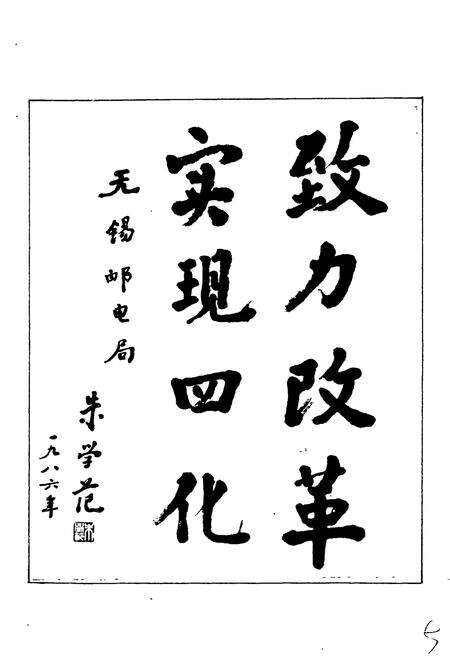 致力改革
实现四化
无锡邮电局
朱学范
一九八六年